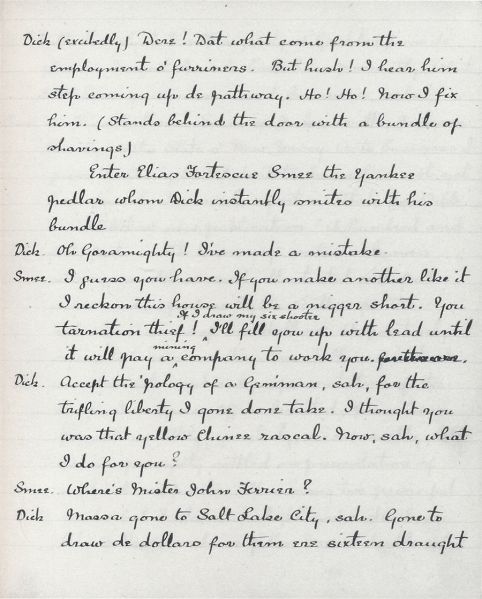 Dick (excitedly) Dere! Dat what come from the
employment o' furriners. But hush! I hear him
step coming up de pathway. Ho! Ho! Now I fix
him. (Stands behind the door with a bundle of
shavings)
Enter Elias Fortescue Smee the Yankee
pedlar whom Dick instantly smites with his
bundle
Dick. Oh Goramighty! I've made a mistake.
Smee. I guess you have. If you make another like it
I reckon this house will be a nigger short. You
If I draw my six shooter
tarnation thief! I'll fill you up with lead until
mining
it will pay a company to work you.
Dick. Accept the 'pology of a Genman, sah, for the
trifling liberty I gone done take. I thought you
was that yellow Chinee rascal. Now, sah, what
I do for you?
Smee. Where's Mister John Ferrier?
Dick Massa gone to Salt Lake City, sah. Gone to
draw de dollars for them ere sixteen draught